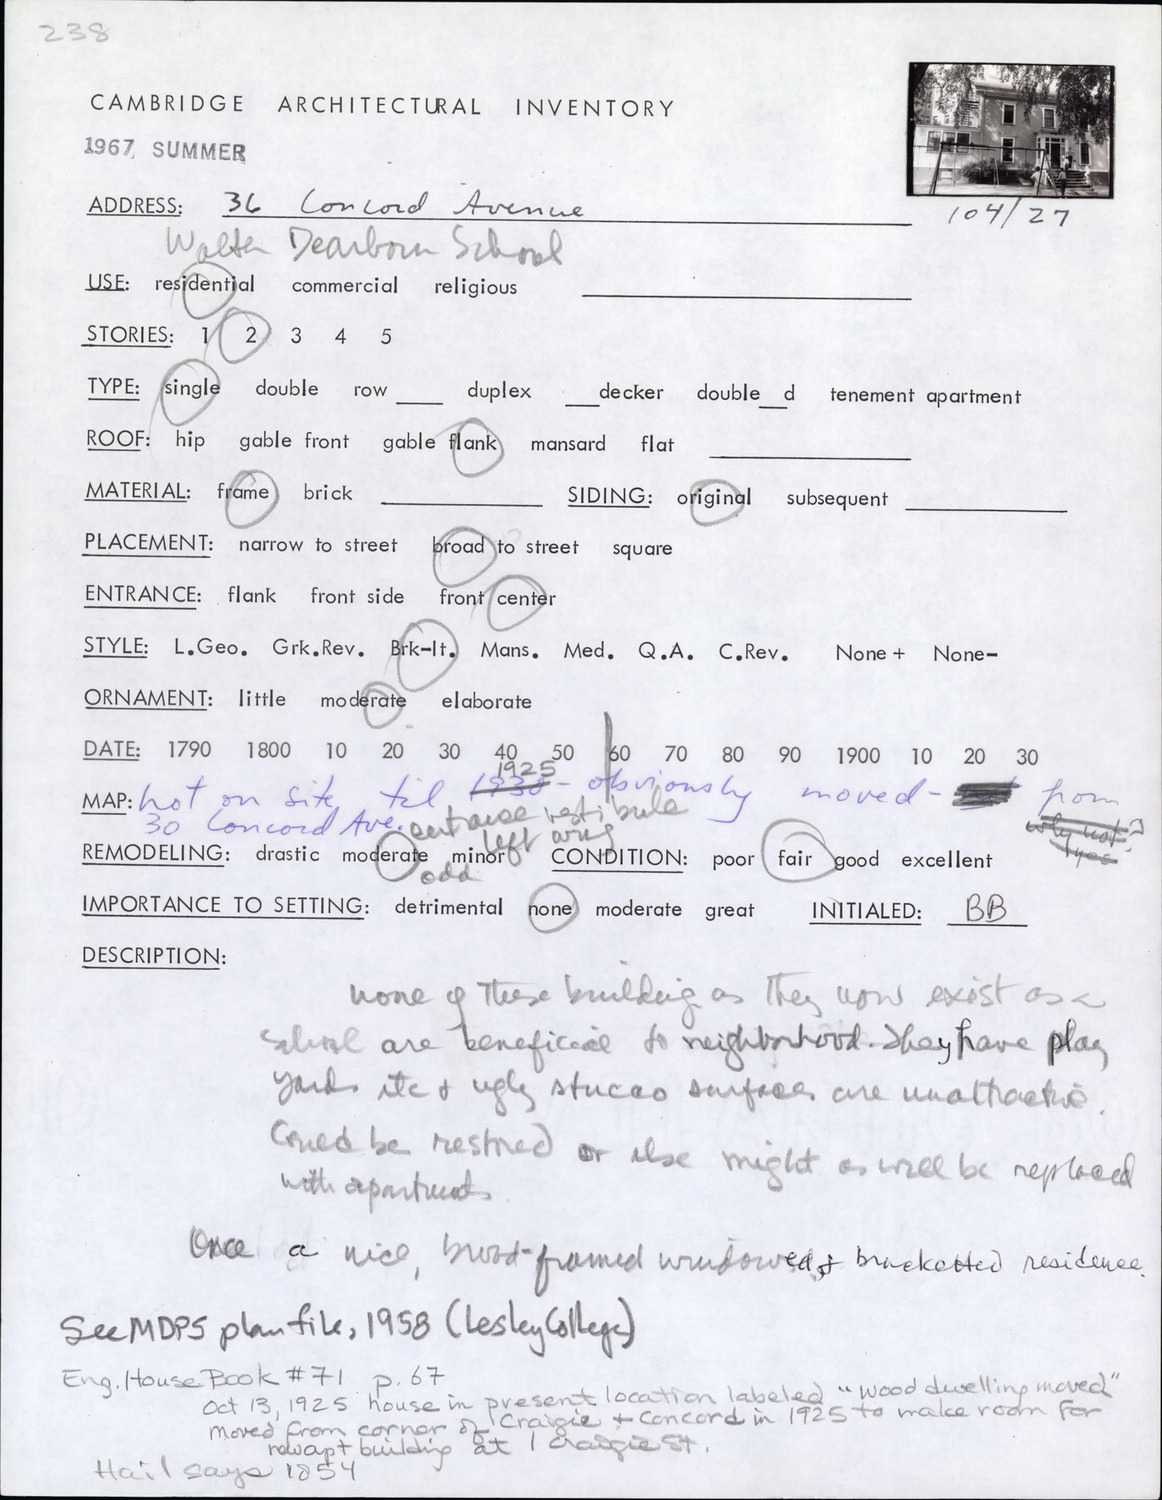 238
CAMBRIDGE ARCHITECTURAL INVENTORY
1967 SUMMER
104/27
ADDRESS: 36 Concord Avenue
Walter Dearborn School
USE: residential commercial religious
STORIES: 1 2 3 4 5
TYPE: single double row ____ duplex ___decker double__d tenement apartment
ROOF: hip gable front gable flank mansard flat
MATERIAL: frame brick SIDING: original subsequent
PLACEMENT: narrow to street broad to street square
ENTRANCE: flank front side front center
STYLE: L.Geo. Grk.Rev. Brk-It. Mans. Med. Q.A. C.Rev. None + None-
ORNAMENT: little moderate elaborate
DATE: 1790 1800 10 20 30 40 50 60 70 80 90 1900 10 20 30
1925
MAP: not on site til 1930 - obviously moved - from
30 Concord Ave. entrance vestibule
left wing why not?
REMODELING: drastic moderate minor CONDITION: poor fair good excellent
odd
IMPORTANCE TO SETTING: detrimental none moderate great INITIALED: BB
DESCRIPTION:
none of these building as they now exist as a
school are beneficial to neighborhood. They have play
yards etc & ugly stucco surfaces are unattractive.
Could be restored or else might as well be replaced
with apartments.
Once a nice, broad-framed windowed & bracketted residence.
See MDPS plan file, 1958 (Lesley College)
Eng. House Book #71 p. 67
Oct 13, 1925 house in present location labeled "wood dwelling moved"
moved from corner of Craigie & Concord in 1925 to make room for
new apt building at 1 Craigie St.
Hail says 1854